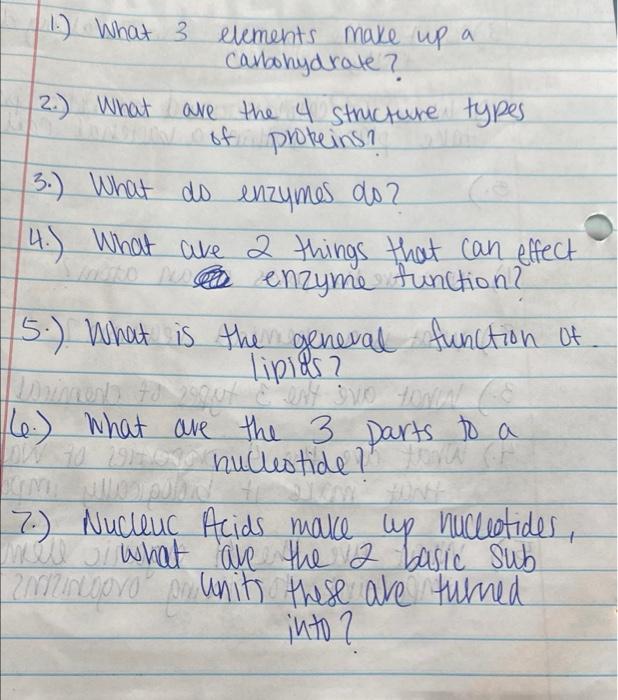 1.) What 3 elements make up a
carbohydrate?
2.) What are the 4 structure types
of proteins?
3.) What do enzymes do?
4.) What are 2 things that can effect
enzyme function?
5.) What is the general function of
lipids?
6.) What are the 3 parts to a
nucleotide?
7.) Nucleuc Acids make up nucleotides,
what are the 2 basic sub
units these are turned
into?